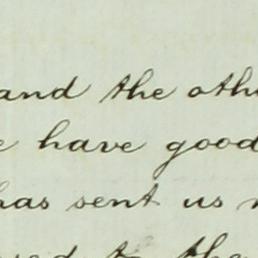 and the oth
have good
has sent us
the